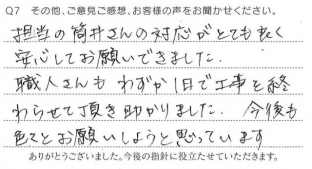 Q7 その他、ご意見ご感想、お客様の声をお聞かせください。
担当の筒井さんの対応がとても良く
安心してお願いできました。
職人さんも わずか1日で工事を終
わらせて頂き助かりました。 今後も
色々とお願いしようと思っています
ありがとうございました。今後の指針に役立たせていただきます。